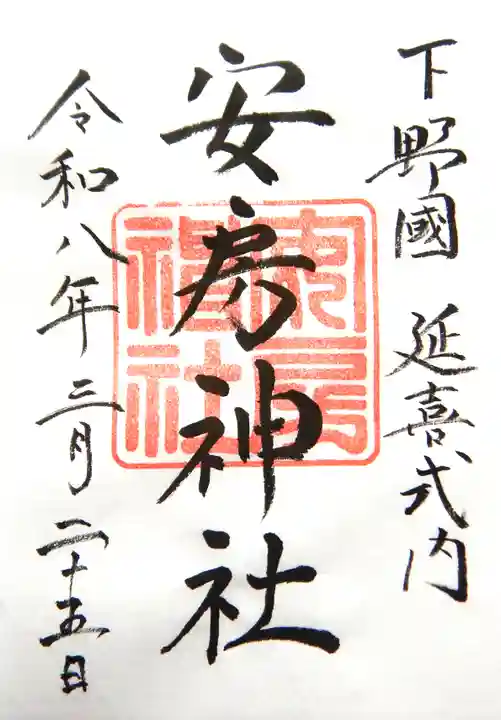 下野國 延喜式内
安房神社
安房神社
令和八年 三月 二十五日